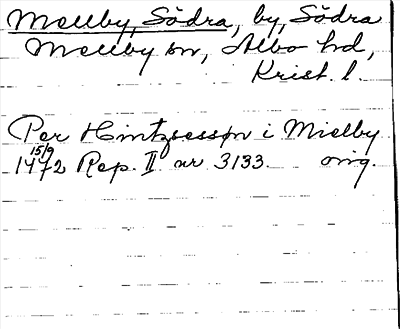 Mellby, Södra, by, Södra
Mellby sn, Albo hd,
Krist. l.
Per Hintzsesson i Mielby
15/9
1472 Rep. II nr 3133. orig.